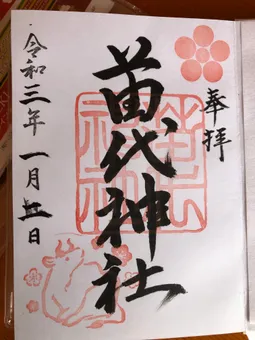 奉拝
苗代神社
令和三年一月五日